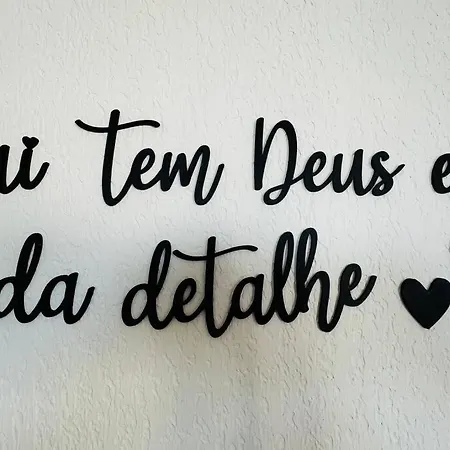 ui tem Deus e
da detalhe